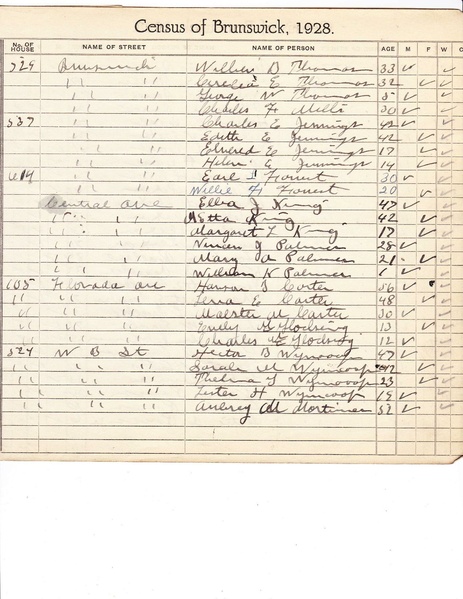 Census of Brunswick, 1928.
No. OF HOUSE NAME OF STREET NAME OF PERSON AGE M F W C
729 Brunswick B Thomas 33 ✓ ✓
" " E Thomas 32 ✓ ✓
" " George W Thomas 5 ✓ ✓
" " Charles F Mills 30 ✓ ✓
537 " " Charles E Jennings 42 ✓ ✓
" " Edith E Jennings 42 ✓ ✓
" " Edward E Jennings 17 ✓ ✓
" " Helen E Jennings 14 ✓ ✓
614 " " Earl Forrest 30 ✓
" " Willie H Forrest 20 ✓
Central Ave Ella J King 47 ✓ ✓
" " Etta King 42 ✓ ✓
" " Margaret L King 17 ✓ ✓
" " J Palmer 28 ✓ ✓
" " Mary A Palmer 21 ✓ ✓
" " William K Palmer 1 ✓ ✓
105 Florada Ave S Carter 56 ✓ ✓
" " " Lena E Carter 48 ✓ ✓
" " " M Carter 30 ✓ ✓
" " " Emily 13 ✓ ✓
" " " Charles 12 ✓ ✓
324 W B St Hector B Wyncoop 47 ✓ ✓
" " " " Sarah M Wyncoop 42 ✓ ✓
" " " " Thelma Wyncoop 23 ✓ ✓
" " " " Lester H Wyncoop 19 ✓ ✓
" " " " Aubrey M Mortimer 52 ✓ ✓